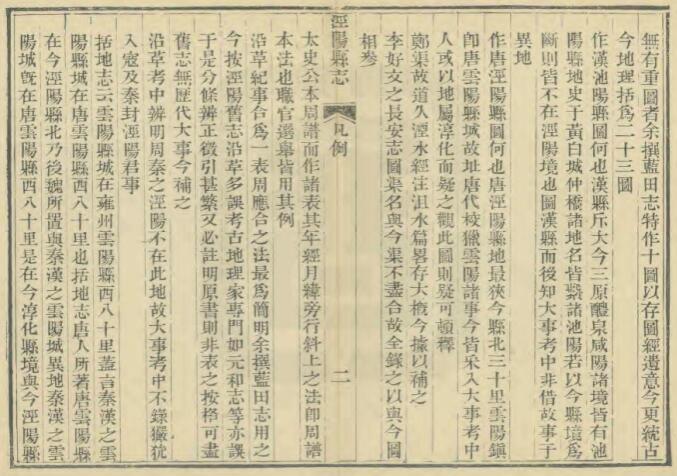 無有重圖者余撰藍田志特作十圖以存圖經遺意今更統古
今地理括爲二十三圖
作漢池陽縣圖何也漢縣斥大今三原醴泉咸陽諸境皆有池
陽縣地史于黃白城仲橋諸地名皆繫諸池陽若以今縣境爲
斷則皆不在涇陽境也圖漢縣而後知大事考中非借故事于
異地
作唐涇陽縣圖何也唐涇陽縣地最狹今縣北三十里雲陽鎮
卽唐雲陽縣城故址唐代校獵雲陽諸事今皆采入大事考中
人或以地屬淳化而疑之觀此圖則疑可頓釋
鄭渠故道久湮水經注沮水篇畧存大㮣今據以補之
李好文之長安志圖渠名與今渠不盡合故全錄之以與今圖
相參
涇陽縣志
凡例
二
太史公本周譜而作諸表其年經月緯旁行斜上之法卽周譜
本法也職官選舉皆用其例
沿革紀事合爲一表周應合之法最爲簡明余撰藍田志用之
今按涇陽舊志沿革多誤考古地理家專門如元和志等亦誤
于是分條辨正徵引甚繁又必註明原書則非表之按格可盡
舊志無歷代大事今補之
沿革考中辨明周秦之涇陽不在此地故大事考中不錄玁狁
入寇及秦封涇陽君事
括地志云雲陽縣城在雍州雲陽縣西八十里蓋言秦漢之雲
陽縣城在唐雲陽縣西八十里也括地志唐人所著唐雲陽縣
在今涇陽縣北乃後魏所置與秦漢之雲陽城異地秦漢之雲
陽城旣在唐雲陽縣西八十里是在今淳化縣境與今涇陽縣